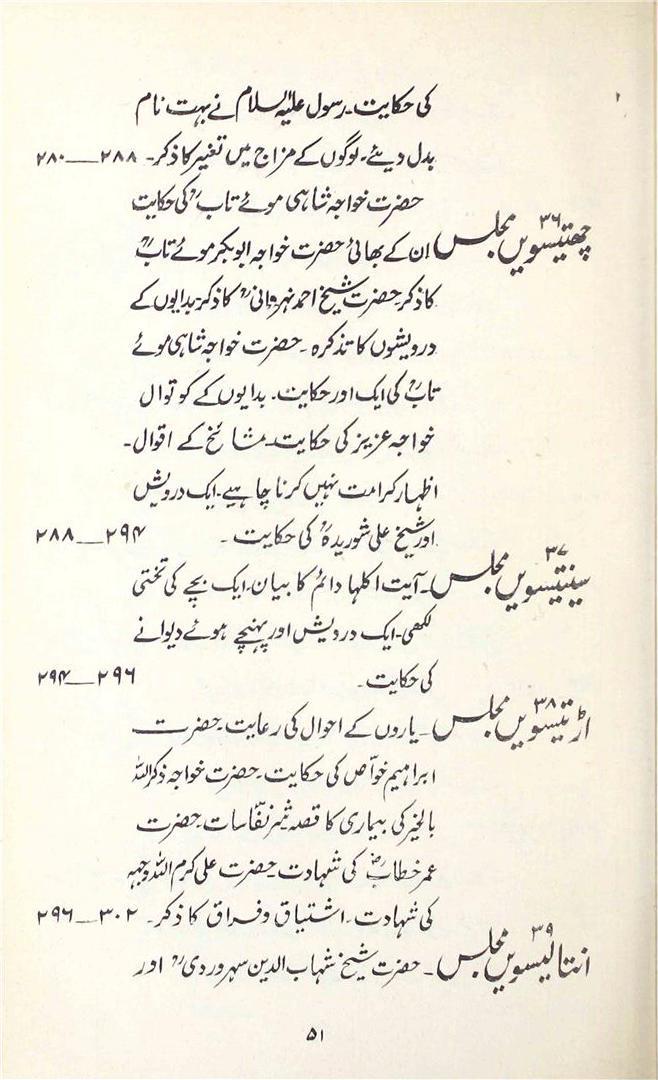 کی حکایت۔ رسول علیہ السلام نے بہت نام
بدل دیئے۔ لوگوں کے مزاج میں تغیر کا ذکر۔ ۲۸۸—۲۸۰
حضرت خواجہ شاہی موئے تابؒ کی حکایت
۳۶ چھتیسویں مجلس ان کے بھائی حضرت خواجہ ابوبکر موئے تابؒ
کا ذکر۔ حضرت شیخ احمد نہروانیؒ کا ذکر۔ بدایوں کے
درویشوں کا تذکرہ۔ حضرت خواجہ شاہی موئے
تابؒ کی ایک اور حکایت۔ بدایوں کے کوتوال
خواجہ عزیز کی حکایت۔ مشائخ کے اقوال۔
اظہار کرامت نہیں کرنا چاہیے۔ ایک درویش
اور شیخ علی شوریدہؒ کی حکایت۔ ۲۹۴—۲۸۸
۳۷ سینتیسویں مجلس۔ آیت اکلہا دائم کا بیان۔ ایک بچے کی تختی
لکھی۔ ایک درویش اور پہنچے ہوئے دیوانے
کی حکایت۔ ۲۹۶—۲۹۴
۳۸ اڑتیسویں مجلس۔ یاروں کے احوال کی رعایت۔ حضرت
ابراہیم خواص کی حکایت۔ حضرت خواجہ ذکر اللہ
بالخیر کی بیماری کا قصہ۔ نفاسات۔ حضرت
عمر خطابؓ کی شہادت۔ حضرت علی کرم اللہ وجہہ
کی شہادت۔ اشتیاق و فراق کا ذکر۔ ۳۰۲—۲۹۶
۳۹ انتالیسویں مجلس۔ حضرت شیخ شہاب الدین سہروردیؒ اور
۵۱